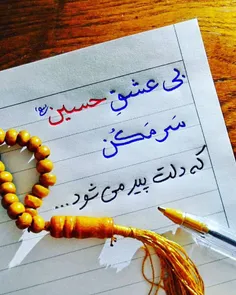 بی عشقِ حسین (ع)
سَر مَکُن
که دلت پیر می شود...